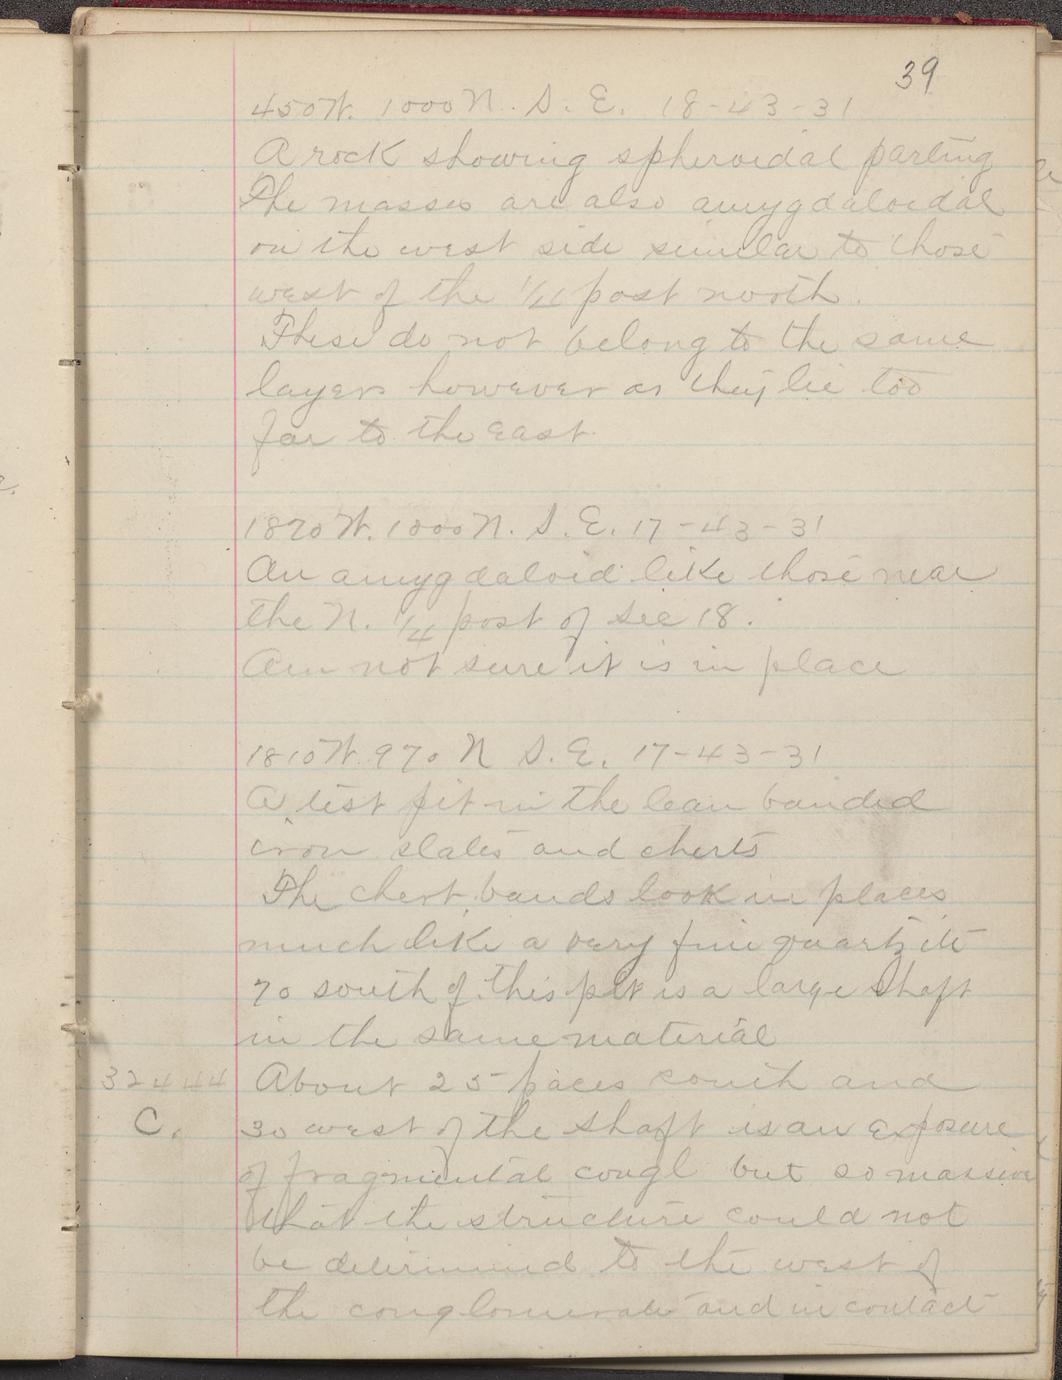 39
450 W. 1000 N. S. E. 18-43-31
A rock showing spheroidal parting
The masses are also amygdaloidal
on the west side similar to those
west of the 1/4 post north.
These do not belong to the same
layer however as they lie too
far to the east
1820 W. 1000 N. S. E. 17-43-31
An amygdaloid like those near
the N. 1/4 post of Sec 18.
Am not sure it is in place
1810 W. 970 N S. E. 17-43-31
A test pit in the lean banded
iron slates and cherts
The chert bands look in places
much like a very fine quartzite
70 south of this pit is a large shaft
in the same material
32444 About 25 paces south and
C. 30 west of the shaft is an exposure
of fragmental congl but so massive
that the structure could not
be determined to the west of
the conglomerate and in contact